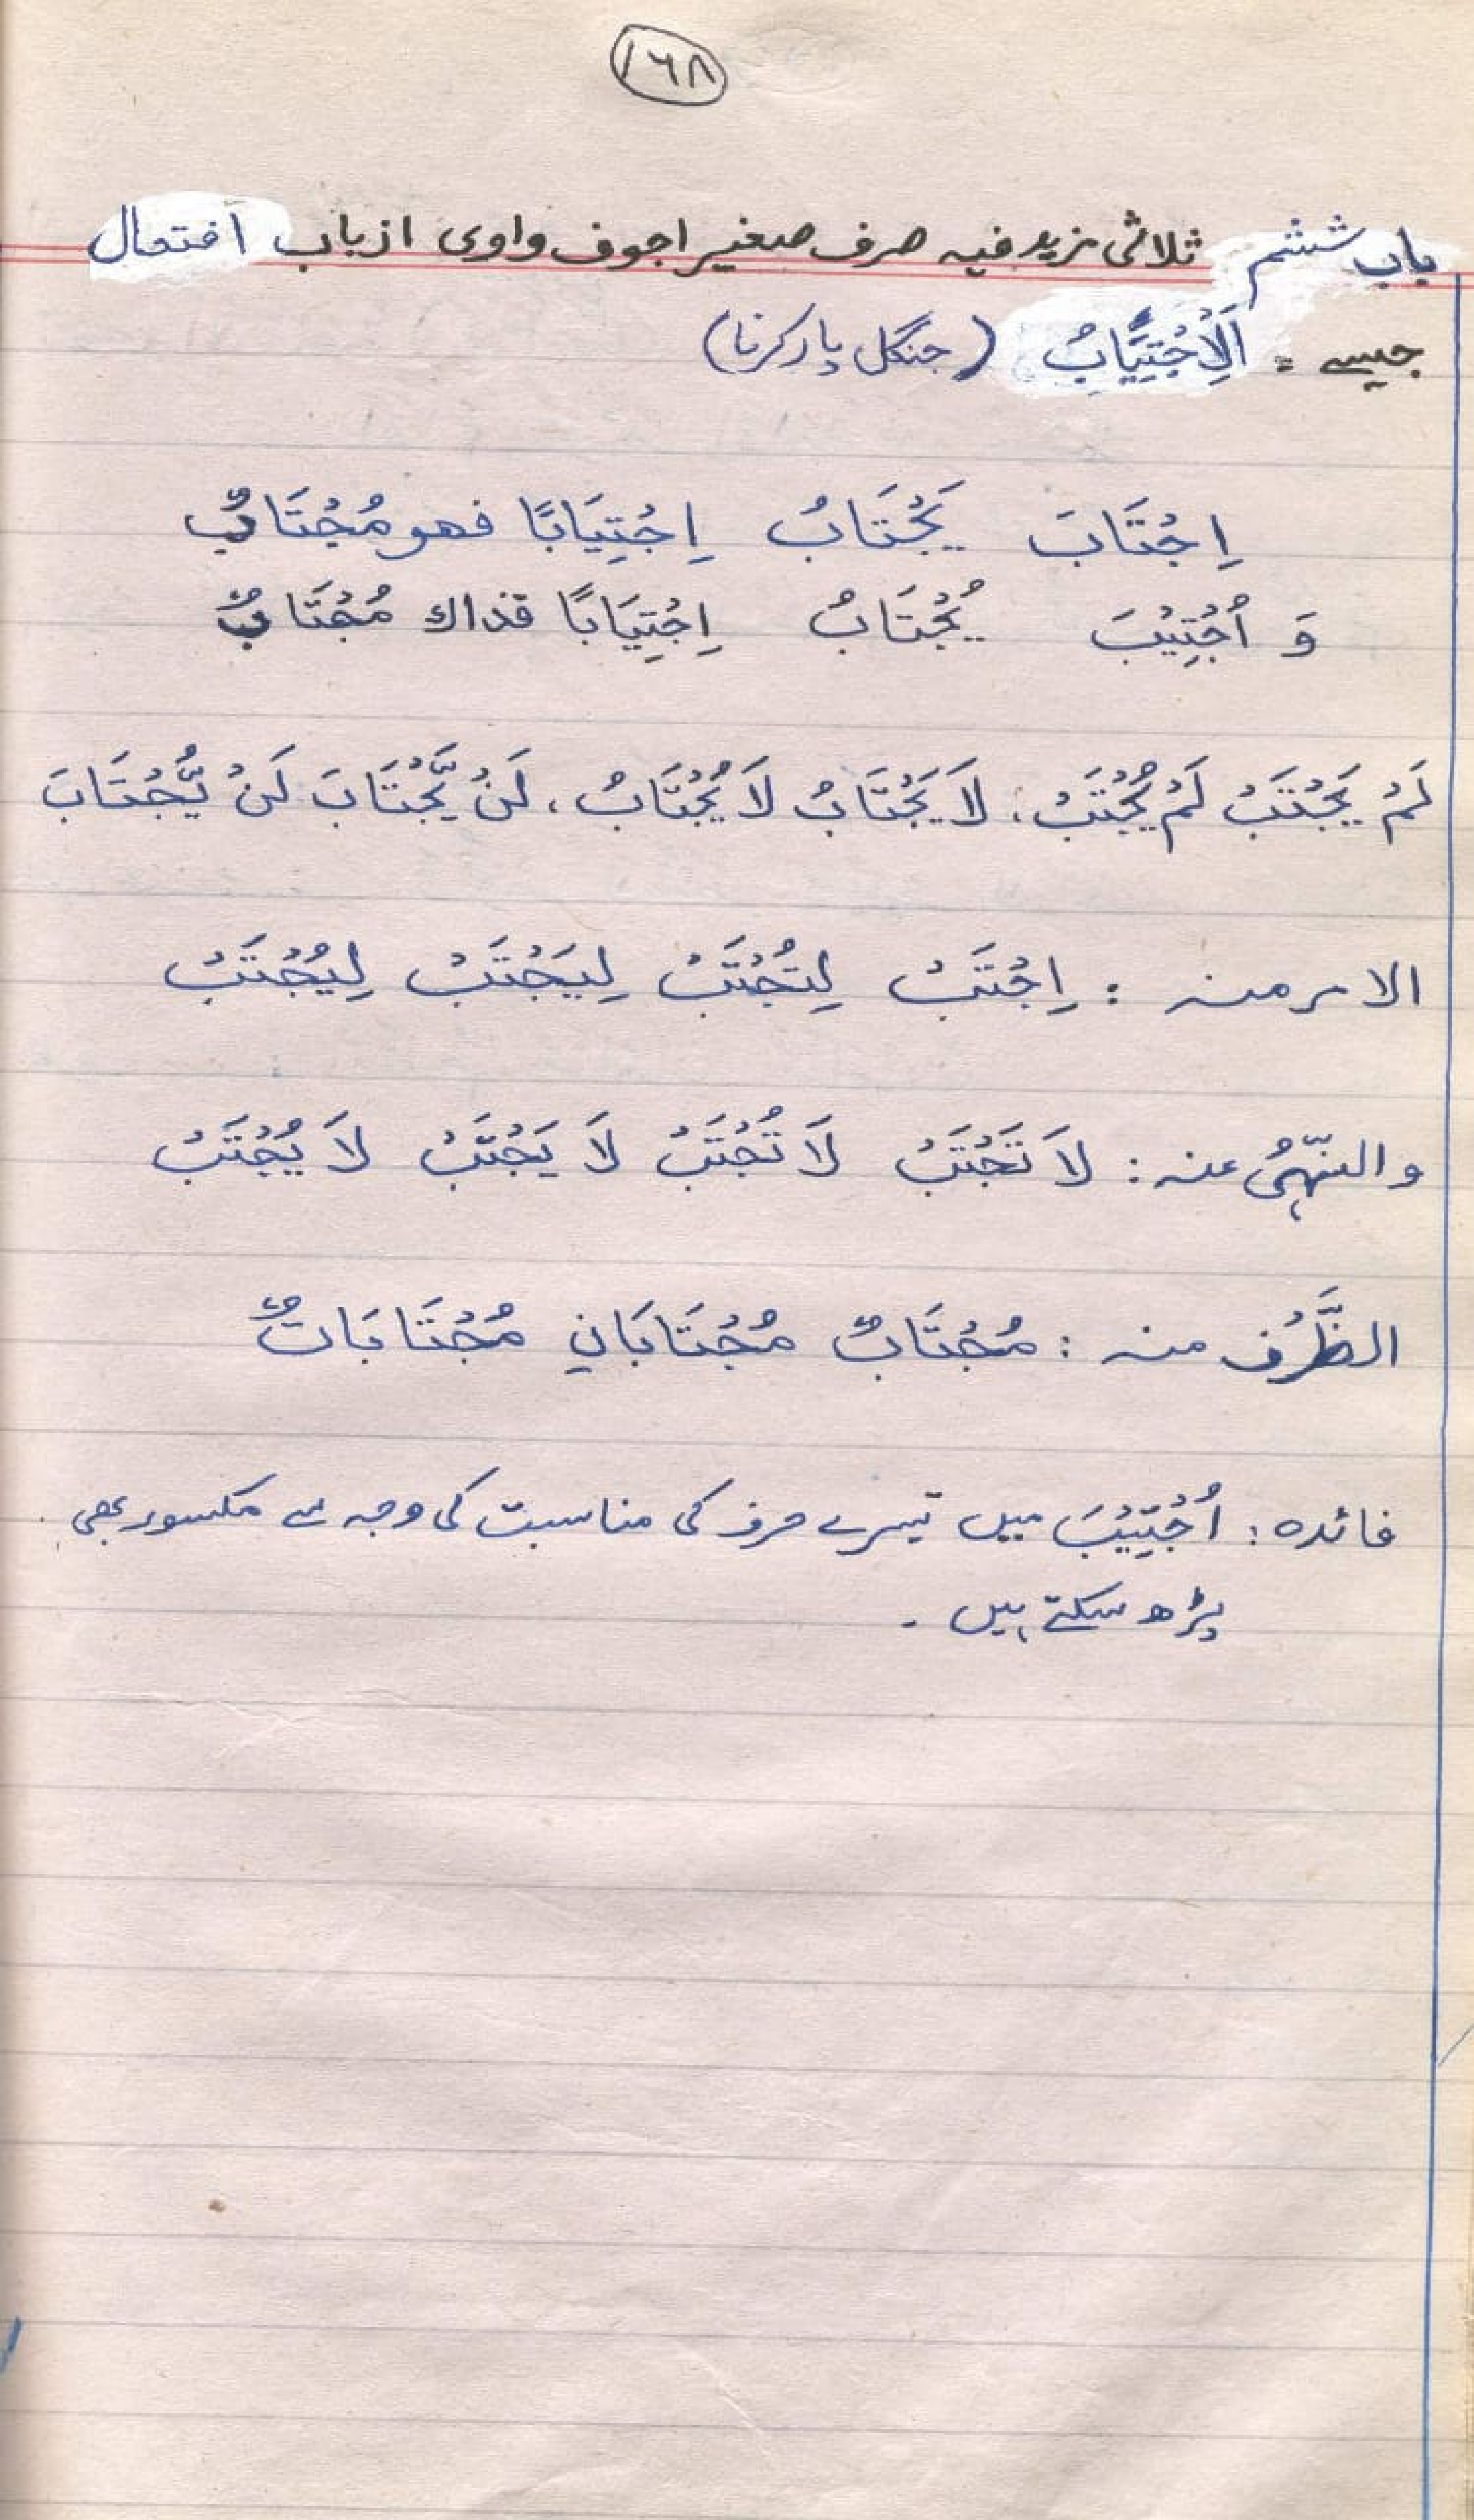 ۱۶۸
باب ششم ثلاثی مزید فیہ صرف صغیر اجوف واوی از باب افتعال
جیسے : اَلْاِجْتِيَابُ (جنگل پار کرنا)
اِجْتَابَ يَجْتَابُ اِجْتِيَابًا فهو مُجْتَابٌ
وَ اُجْتِيْبَ يُجْتَابُ اِجْتِيَابًا فذاك مُجْتَابٌ
لَمْ يَجْتَبْ لَمْ يُجْتَبْ، لَا يَجْتَابُ لَا يُجْتَابُ، لَنْ يَّجْتَابَ لَنْ يُّجْتَابَ
الامر منه : اِجْتَبْ لِتُجْتَبْ لِيَجْتَبْ لِيُجْتَبْ
والنّهىُ عنه : لَا تَجْتَبْ لَا تُجْتَبْ لَا يَجْتَبْ لَا يُجْتَبْ
الظَّرْف منه : مُجْتَابٌ مُجْتَابَانِ مُجْتَابَاتٌ
فائدہ : اُجْتِيْبَ میں تیسرے حرف کی مناسبت کی وجہ سے مکسور بھی
پڑھ سکتے ہیں ۔